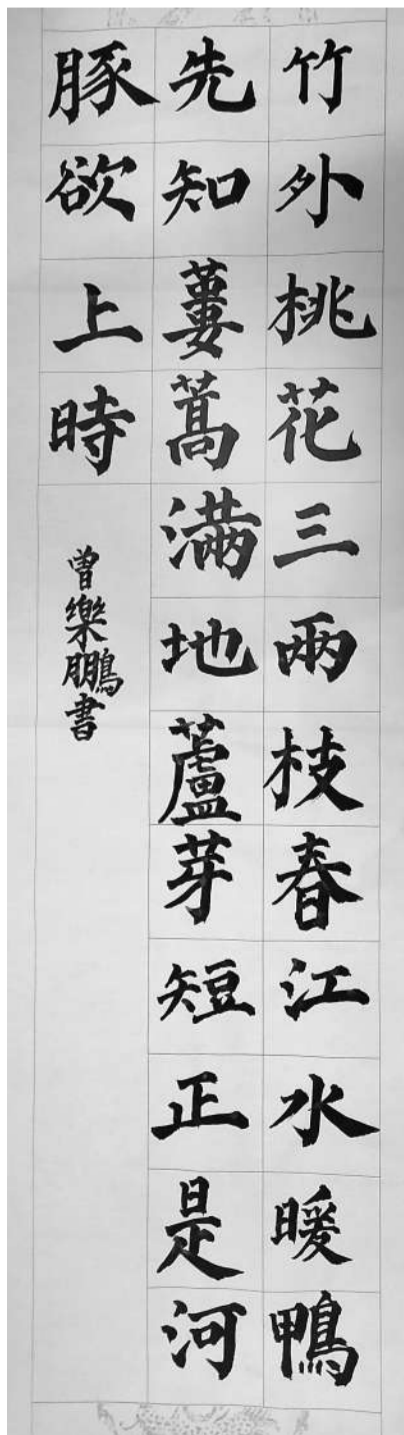 竹外桃花三兩枝春江水暖鴨
先知蔞蒿滿地蘆芽短正是河
豚欲上時
曾樂鵬書